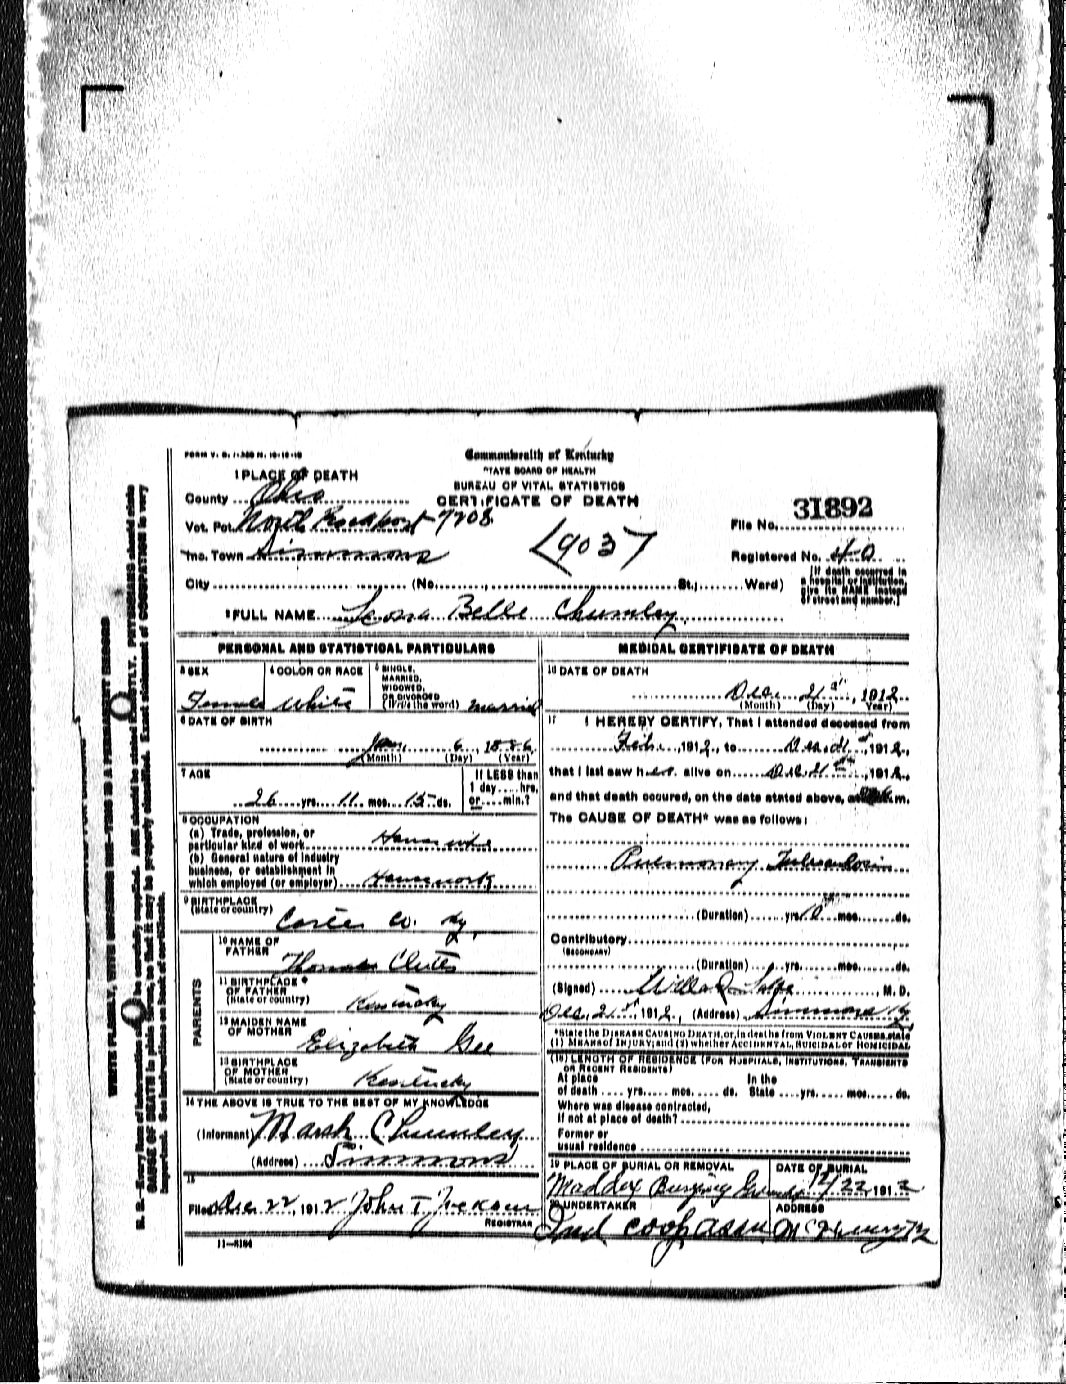 FORM V. S.
Commonwealth of Kentucky
STATE BOARD OF HEALTH
BUREAU OF VITAL STATISTICS
CERTIFICATE OF DEATH
1 PLACE OF DEATH
County Ohio
Vot. Pct. North Rockport 7208
Inc. Town Simmons
City (No. , St.; Ward)
1903
31892
File No.
Registered No. 40
[If death occurred in
a hospital or institution,
give its NAME instead
of street and number.]
2 FULL NAME Leona Belle Chumley
PERSONAL AND STATISTICAL PARTICULARS
3 SEX
Female
4 COLOR OR RACE
White
5 SINGLE,
MARRIED,
WIDOWED,
OR DIVORCED
(Write the word) married
6 DATE OF BIRTH
Jan 6, 1886
(Month) (Day) (Year)
7 AGE
26 yrs. 11 mos. 15 ds.
If LESS than
1 day hrs.
or min.?
8 OCCUPATION
(a) Trade, profession, or
particular kind of work House wife
(b) General nature of industry
business, or establishment in
which employed (or employer) Housework
9 BIRTHPLACE
(State or country) Carter Co. Ky.
PARENTS
10 NAME OF
FATHER Thomas
11 BIRTHPLACE
OF FATHER
(State or country) Kentucky
12 MAIDEN NAME
OF MOTHER Elizabeth Gee
13 BIRTHPLACE
OF MOTHER
(State or country) Kentucky
14 THE ABOVE IS TRUE TO THE BEST OF MY KNOWLEDGE
(Informant) Marsh Chumley
(Address) Simmons
15
Filed Dec 22, 1912 John T Jackson
REGISTRAR
11-3184
MEDICAL CERTIFICATE OF DEATH
16 DATE OF DEATH
Dec. 21st, 1912
(Month) (Day) (Year)
17 I HEREBY CERTIFY, That I attended deceased from
Feb. , 1912, to Dec. 21st, 1912,
that I last saw her alive on Dec. 21st, 1912,
and that death occured, on the date stated above, at m.
The CAUSE OF DEATH* was as follows:
Pulmonary Tuberculosis
(Duration) yrs. 10 mos. ds.
Contributory
(SECONDARY)
(Duration) yrs. mos. ds.
(Signed) Willard , M. D.
Dec. 21st, 1912, (Address) Simmons Ky.
*State the DISEASE CAUSING DEATH, or, in deaths from VIOLENT CAUSES, state
(1) MEANS OF INJURY; and (2) whether ACCIDENTAL, SUICIDAL OR HOMICIDAL
(18) LENGTH OF RESIDENCE (FOR HOSPITALS, INSTITUTIONS, TRANSIENTS
OR RECENT RESIDENTS)
At place In the
of death yrs. mos. ds. State yrs. mos. ds.
Where was disease contracted,
If not at place of death?
Former or
usual residence
19 PLACE OF BURIAL OR REMOVAL
Maddox Burying Grounds
DATE OF BURIAL
12/22 1912
20 UNDERTAKER
Ind coop assn
ADDRESS
McHenry Ky